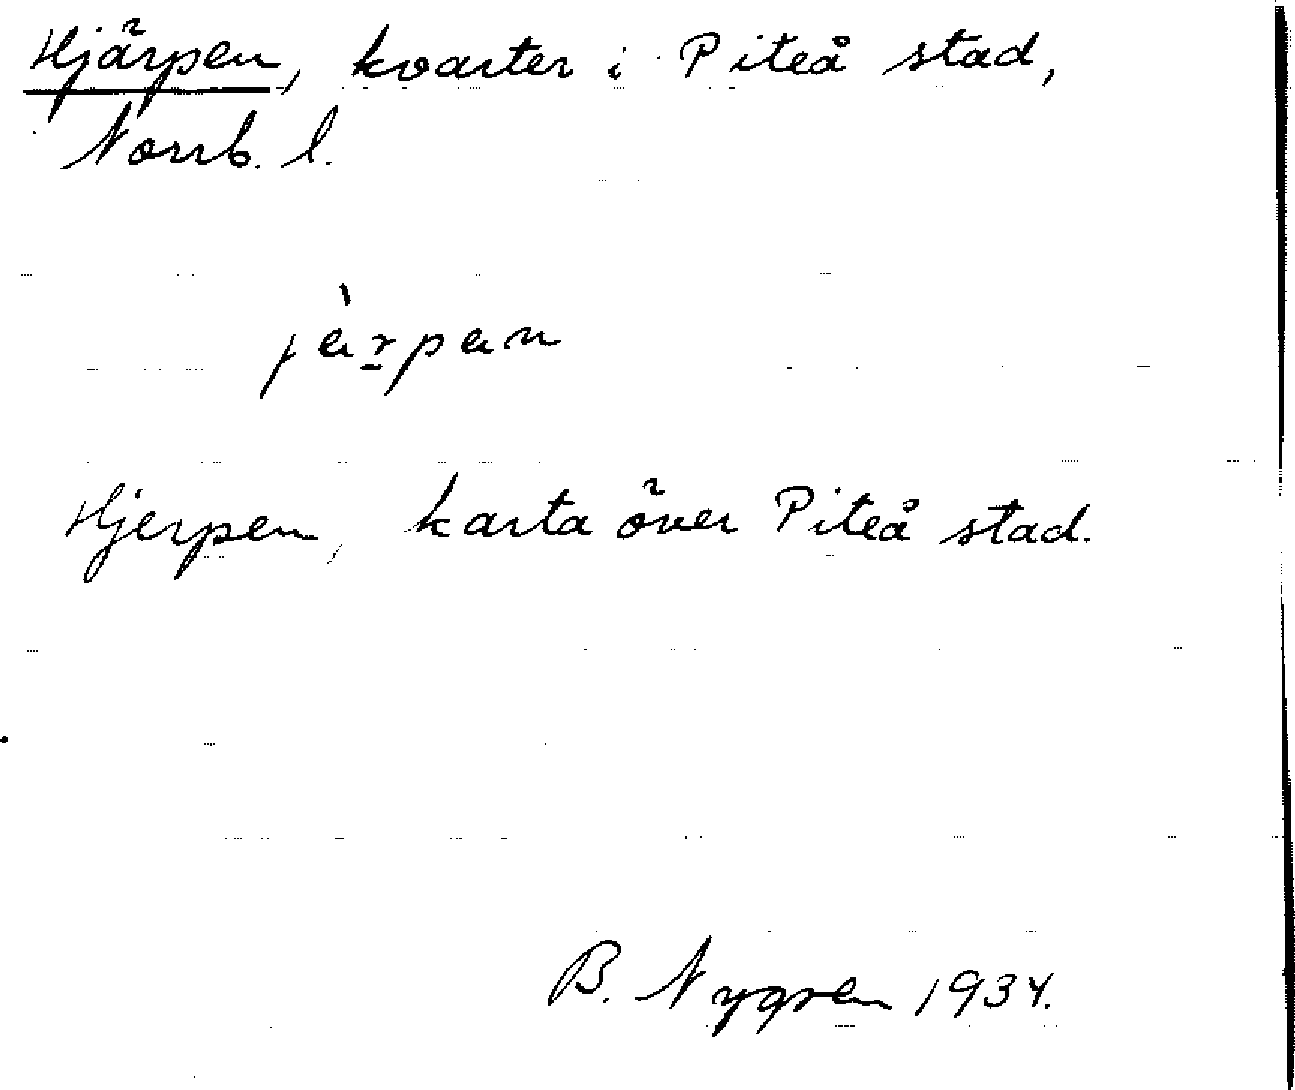 Hjärpen, kvarter i Piteå stad,
Norrb. l.
Hjerpen, karta över Piteå stad.
B. Nygren 1934.